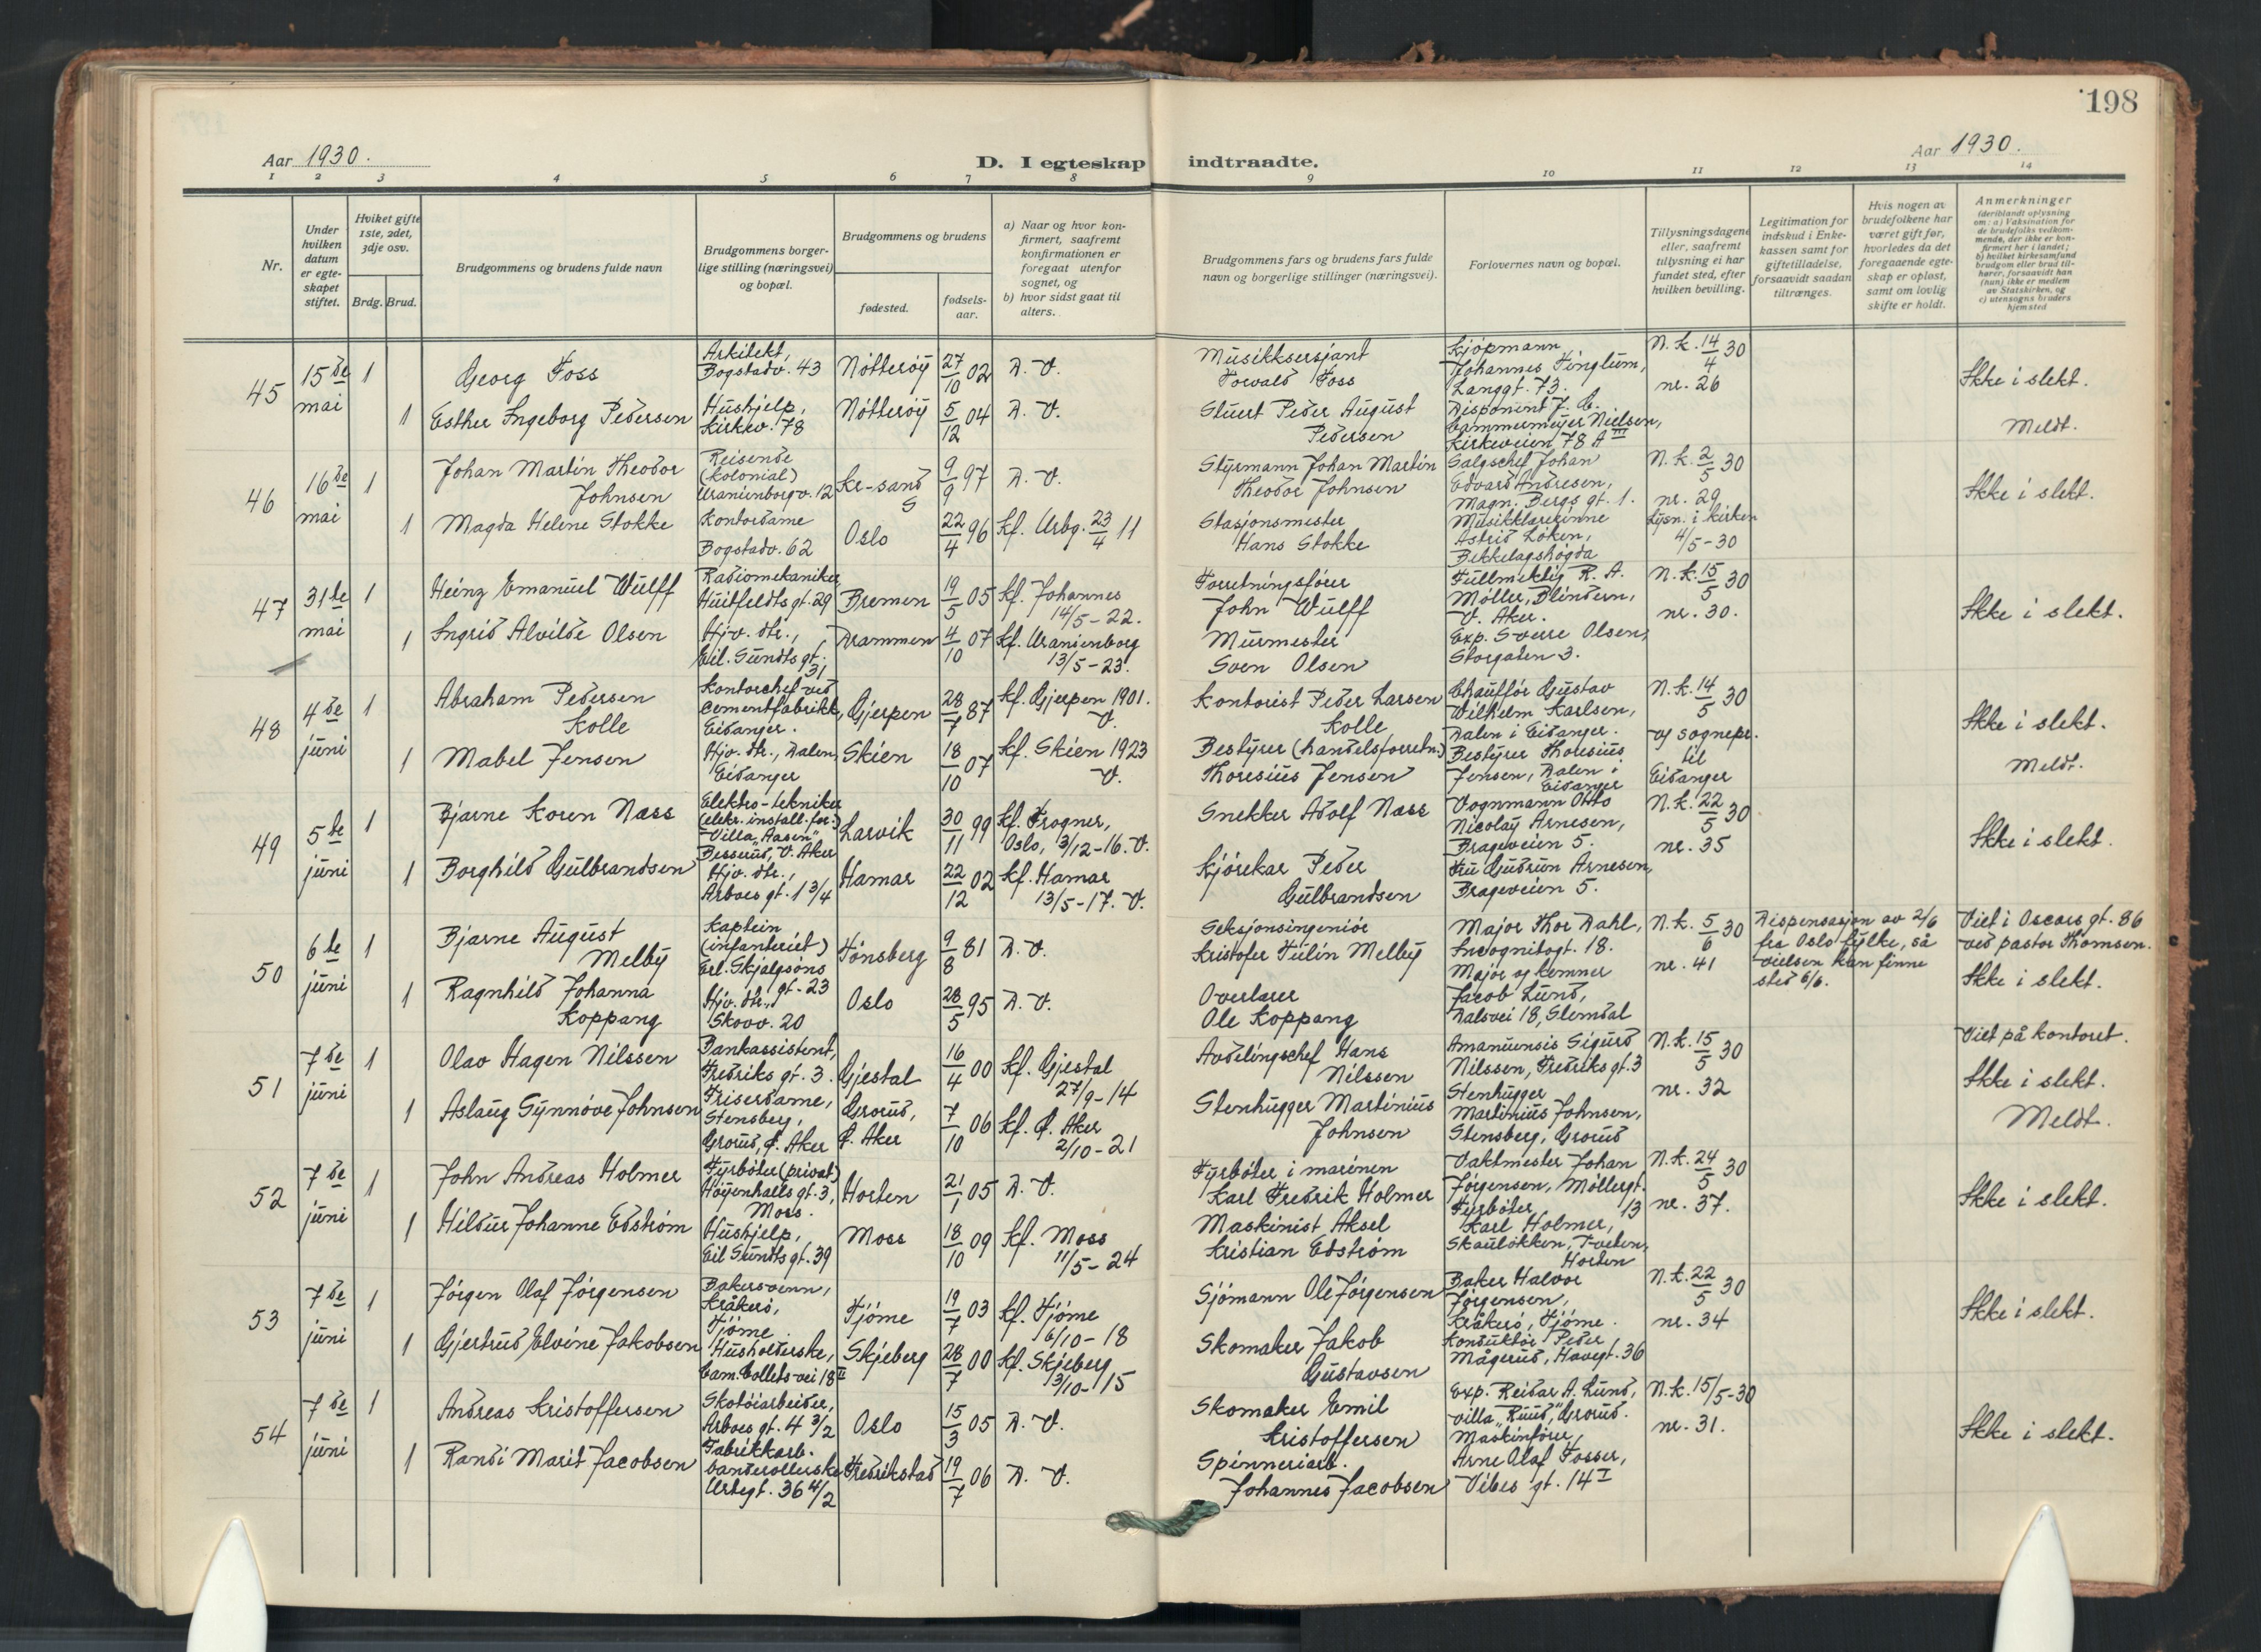 198
Aar 1930.
D. I egteskap indtraadte.
Aar 1930.
1 2 3 4 5 6 7 8 9 10 11 12 13 14
Nr.
Under hvilken datum er egte-skapet stiftet.
Hviket gifte 1ste, 2det, 3dje osv.
Brdg. Brud.
Brudgommens og brudens fulde navn
Brudgommens borger-lige stilling (næringsvei) og bopæl.
Brudgommens og brudens
fødested.
fødsels-aar.
a) Naar og hvor kon-firmert, saafremt konfirmationen er foregaat utenfor sognet, og
b) hvor sidst gaat til alters.
Brudgommens fars og brudens fars fulde navn og borgerlige stillinger (næringsvei).
Forlovernes navn og bopæl.
Tillysningsdagene eller, saafremt tillysning ei har fundet sted, efter hvilken bevilling.
Legitimation for indskud i Enke-kassen samt for giftetilladelse, forsaavidt saadan tiltrænges.
Hvis nogen av brudefolkene har været gift før, hvorledes da det foregaaende egte-skap er opløst, samt om lovlig skifte er holdt.
Anmerkninger
(deriblandt oplysning om: a) Vaksination for de brudefolks vedkom-mende, der ikke er kon-firmert her i landet; b) hvilket kirkesamfund brudgom eller brud til-hører, forsaavidt han (hun) ikke er medlem av Statskirken, og c) utensogns bruders hjemsted
45 15de mai 1 Georg Foss Arkitekt, Bogstadv. 43 Nötteröy 27/10 02 D. V. Musikksersjant Torvald Foss Kjöpmann Johannes Tinglum, Langgt. 73. N.k. 14/4 30 nr. 26 Ikke i slekt.
1 Esther Ingeborg Pedersen Hushjelp, Kirkev. 78 Nötteröy 5/12 04 D. V. Stuert Peder August Pedersen Disponent J. C. Cammermeyer Nielsen, Kirkeveien 78 A III Meldt.
46 16de mai 1 Johan Martin Theodor Johnsen Reisende (kolonial) Uranienborgv. 12 Kr-sand S 9/9 97 D. V. Styrmann Johan Martin Theodor Johnsen Salgschef Johan Edvard Andresen, Magn. Bergs gt. 1. N.k. 2/5 30 nr. 29 Ikke i slekt.
1 Magda Helene Stokke Kontordame Bogstadv. 62 Oslo 22/4 96 Kf. Urbg. 23/4 11 Stasjonsmester Hans Stokke Musikklærerinne Astrid Löken, Bekkelagshögda Lysn. i kirken 4/5-30
47 31te mai 1 Heinz Emanuel Wulff Radiomekaniker, Huitfeldts gt. 29 Bremen 19/5 05 Kf. Johannes 14/5-22. Forretningsförer John Wulff Fullmektig R. A. Möller, Blindern, V. Aker. N.k. 15/5 30 nr. 30. Ikke i slekt.
1 Ingrid Alvilde Olsen Hjv. dtr., Eil. Sundts gt. 31 Drammen 4/10 07 Kf. Uranienborg 13/5-23. Murmester Sven Olsen Exp. Sverre Olsen, Storgaten 3.
48 4de juni 1 Abraham Pedersen Kolle Kontorchef ved cementfabrikk, Eidanger. Gjerpen 28/7 87 Kf. Gjerpen 1901. V. Kontorist Peder Larsen Kolle Chaufför Gustav Wilhelm Karlsen, Dalen i Eidanger. N.k. 14/5 30 og sognepr. til Eidanger Ikke i slekt.
1 Mabel Jensen Hjv. dtr., Dalen, Eidanger Skien 18/10 07 Kf. Skien 1923 V. Bestyrer (handelsforretn.) Thoresius Jensen Bestyrer Thoresius Jensen, Dalen i Eidanger Meldt.
49 5te juni 1 Bjarne Koren Næss Elektro-tekniker (elekr. install. for.) Villa "Aasen" Besserud, V. Aker Larvik 30/11 99 Kf. Frogner, Oslo, 3/12-16. V. Snekker Adolf Næss Vognmann Otto Nicolay Arnesen, Brageveien 5. N.k. 22/5 30 nr. 35 Ikke i slekt.
1 Borghild Gulbrandsen Hjv. dtr., Arboes gt. 1 3/4 Hamar 22/12 02 Kf. Hamar 13/5-17. V. Kjörekar Peder Gulbrandsen Fru Gudrun Arnesen, Brageveien 5.
50 6te juni 1 Bjarne August Melby Kaptein (infanteriet) Erl. Skjalgsöns gt. 23 Tönsberg 9/8 81 D. V. Seksjonsingeniör Kristofer Tulin Melby Major Thor Dahl, Incognitogt. 18. N.k. 5/6 30 nr. 41 Dispensasjon av 2/6 fra Oslo fylke, så vielsen kan finne sted 6/6. Viet i Oscars gt. 86 ved pastor Thomsen. Ikke i slekt.
1 Ragnhild Johanna Koppang Hjv. dtr., Skovv. 20 Oslo 28/5 95 D. V. Overlærer Ole Koppang Major og kemner Jacob Lund, Dalsvei 18, Slemdal
51 7de juni 1 Olav Hagen Nilssen Bankassistent, Fredriks gt. 3. Gjestal 16/4 00 Kf. Gjestal 27/9-14 Avdelingschef Hans Nilssen Amanuensis Sigurd Nilssen, Fredriks gt. 3 N.k. 15/5 30 nr. 32 Viet på kontoret. Ikke i slekt.
1 Aslaug Synnöve Johnsen Friserdame, Stensberg, Grorud, Ö. Aker Grorud, Ö. Aker 7/10 06 Kf. Ö. Aker 2/10-21 Stenhugger Martinius Johnsen Stenhugger Martinius Johnsen, Stensberg, Grorud Meldt.
52 7de juni 1 John Andreas Holmer Fyrböter (privat) Höyenhalls gt. 3, Moss. Horten 21/1 05 D. V. Fyrböter i marinen Karl Fredrik Holmer Vaktmester Johan Jörgensen, Möllergt. 13 N.k. 24/5 30 nr. 37. Ikke i slekt.
1 Hildur Johanne Edström Hushjelp, Eil Sundts gt. 39 Moss 18/10 09 Kf. Moss 11/5-24 Maskinist Aksel Kristian Edström Fyrböter, Karl Holmer, Skaulökken, Tveten, Horten
53 7de juni 1 Jörgen Olaf Jörgensen Bakersvenn, Kråkerö, Tjöme. Tjöme 19/7 03 Kf. Tjöme 6/10-18 Sjömann Ole Jörgensen Baker Halvor Jörgensen, Kråkerö, Tjöme. N.k. 22/5 30 nr. 34 Ikke i slekt.
1 Gjertrud Elvine Jakobsen Husholderske, Cam. Colletts vei 18 II Skjeberg 28/7 00 Kf. Skjeberg 3/10-15 Skomaker Jakob Gustavsen Konduktör Peder Mågerud, Havegt. 36
54 7de juni 1 Andreas Kristoffersen Skotöiarbeider, Arboes gt. 4 3/2 Oslo 15/3 05 D. V. Skomaker Emil Kristoffersen Exp. Reidar A. Lund, villa "Ruud", Grorud. N.k. 15/5-30 nr. 31. Ikke i slekt.
1 Randi Marit Jacobsen Fabrikkarb. banderollerske Urtegt. 36 4/2 Fredrikstad 19/7 06 D. V. Spinneriarb. Johannes Jacobsen Maskinförer, Arne Olaf Fosser, Vibes gt. 14 I